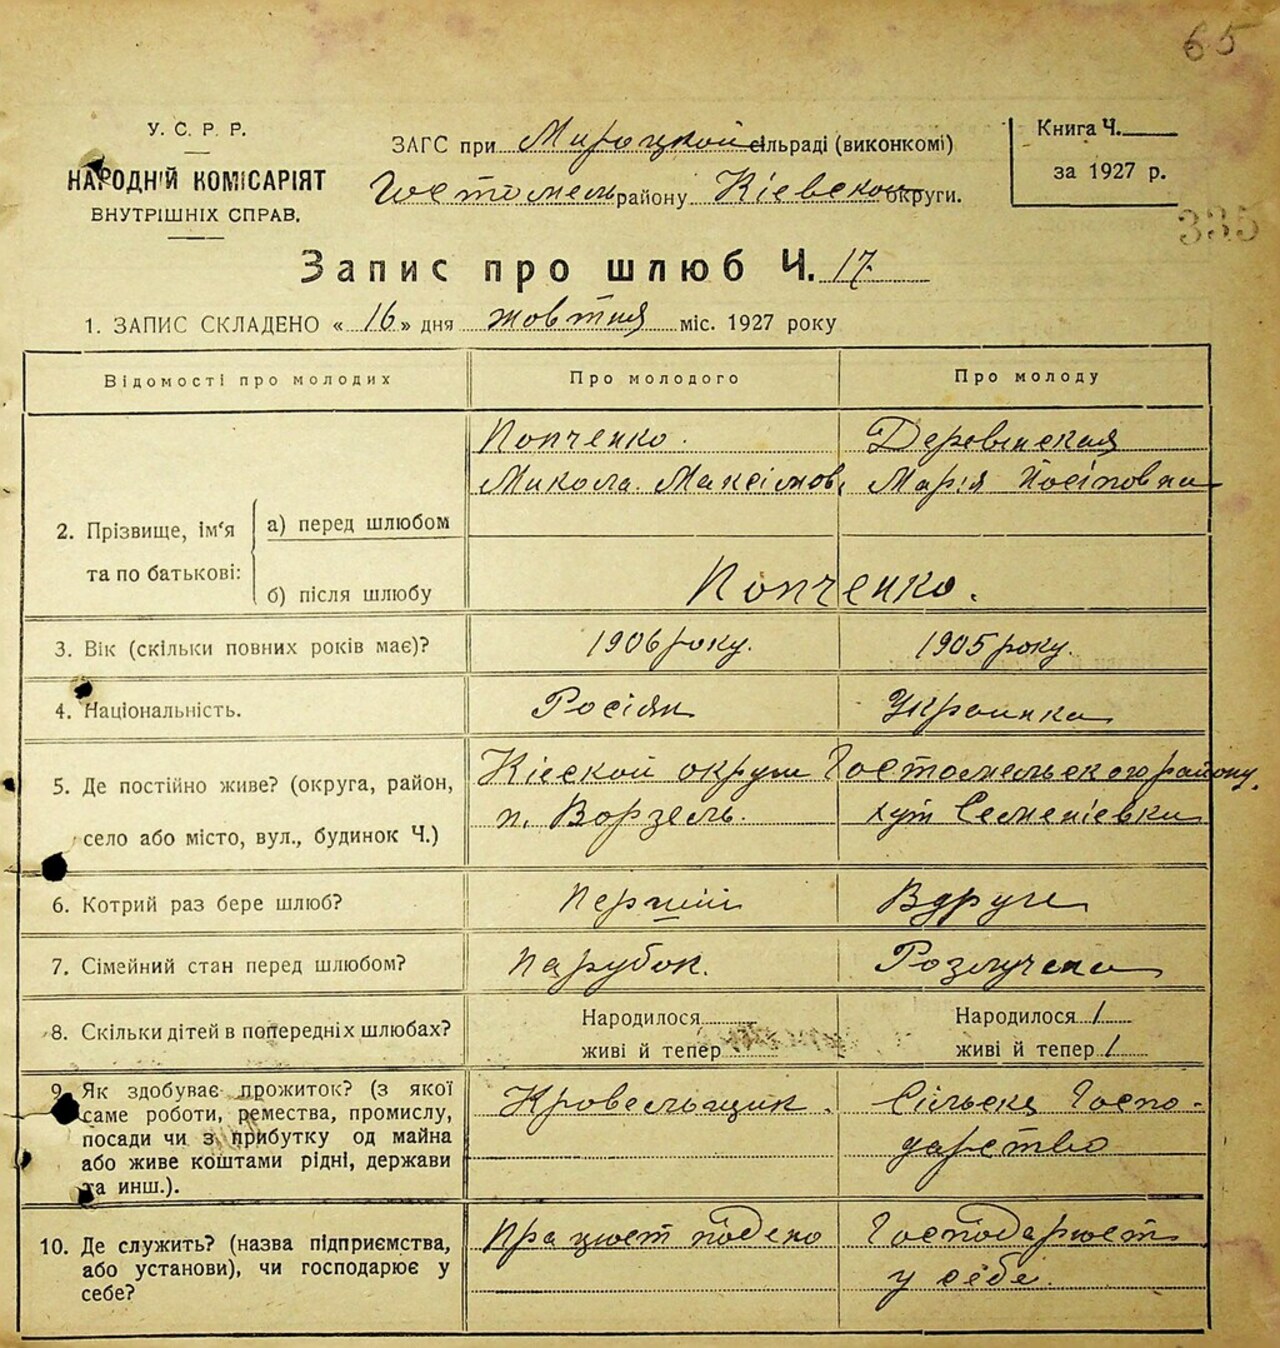 65
У. С. Р. Р.
НАРОДНІЙ КОМІСАРІЯТ
ВНУТРІШНІХ СПРАВ.
ЗАГС при Мироцкой сільраді (виконкомі)
Гостомель району Кіевской округи.
Книга Ч.
за 1927 р.
335
Запис про шлюб Ч. 17.
1. ЗАПИС СКЛАДЕНО « 16 » дня жовтня міс. 1927 року
Відомості про молодих Про молодого Про молоду
Попченко. Деревинская
Микола Максімов. Марія Йосіповна
2. Прізвище, ім'я та по батькові: а) перед шлюбом
б) після шлюбу Попченко.
3. Вік (скільки повних років має)? 1906 року. 1905 року.
4. Національність. Росіян Украинка
5. Де постійно живе? (округа, район, Кіеской округи Гостомельского району,
село або місто, вул., будинок Ч.) п. Ворзель. хут Семенівка
6. Котрий раз бере шлюб? Перший Вдруге
7. Сімейний стан перед шлюбом? Парубок. Розлучена
8. Скільки дітей в попередніх шлюбах? Народилося Народилося 1
живі й тепер живі й тепер 1
9. Як здобуває прожиток? (з якої Кровельщик. Сільске Госпо-
саме роботи, ремества, промислу, дарство
посади чи з прибутку од майна
або живе коштами рідні, держави
та инш.).
10. Де служить? (назва підприємства, Працюет подено Господарюет
або установи), чи господарює у у себе.
себе?